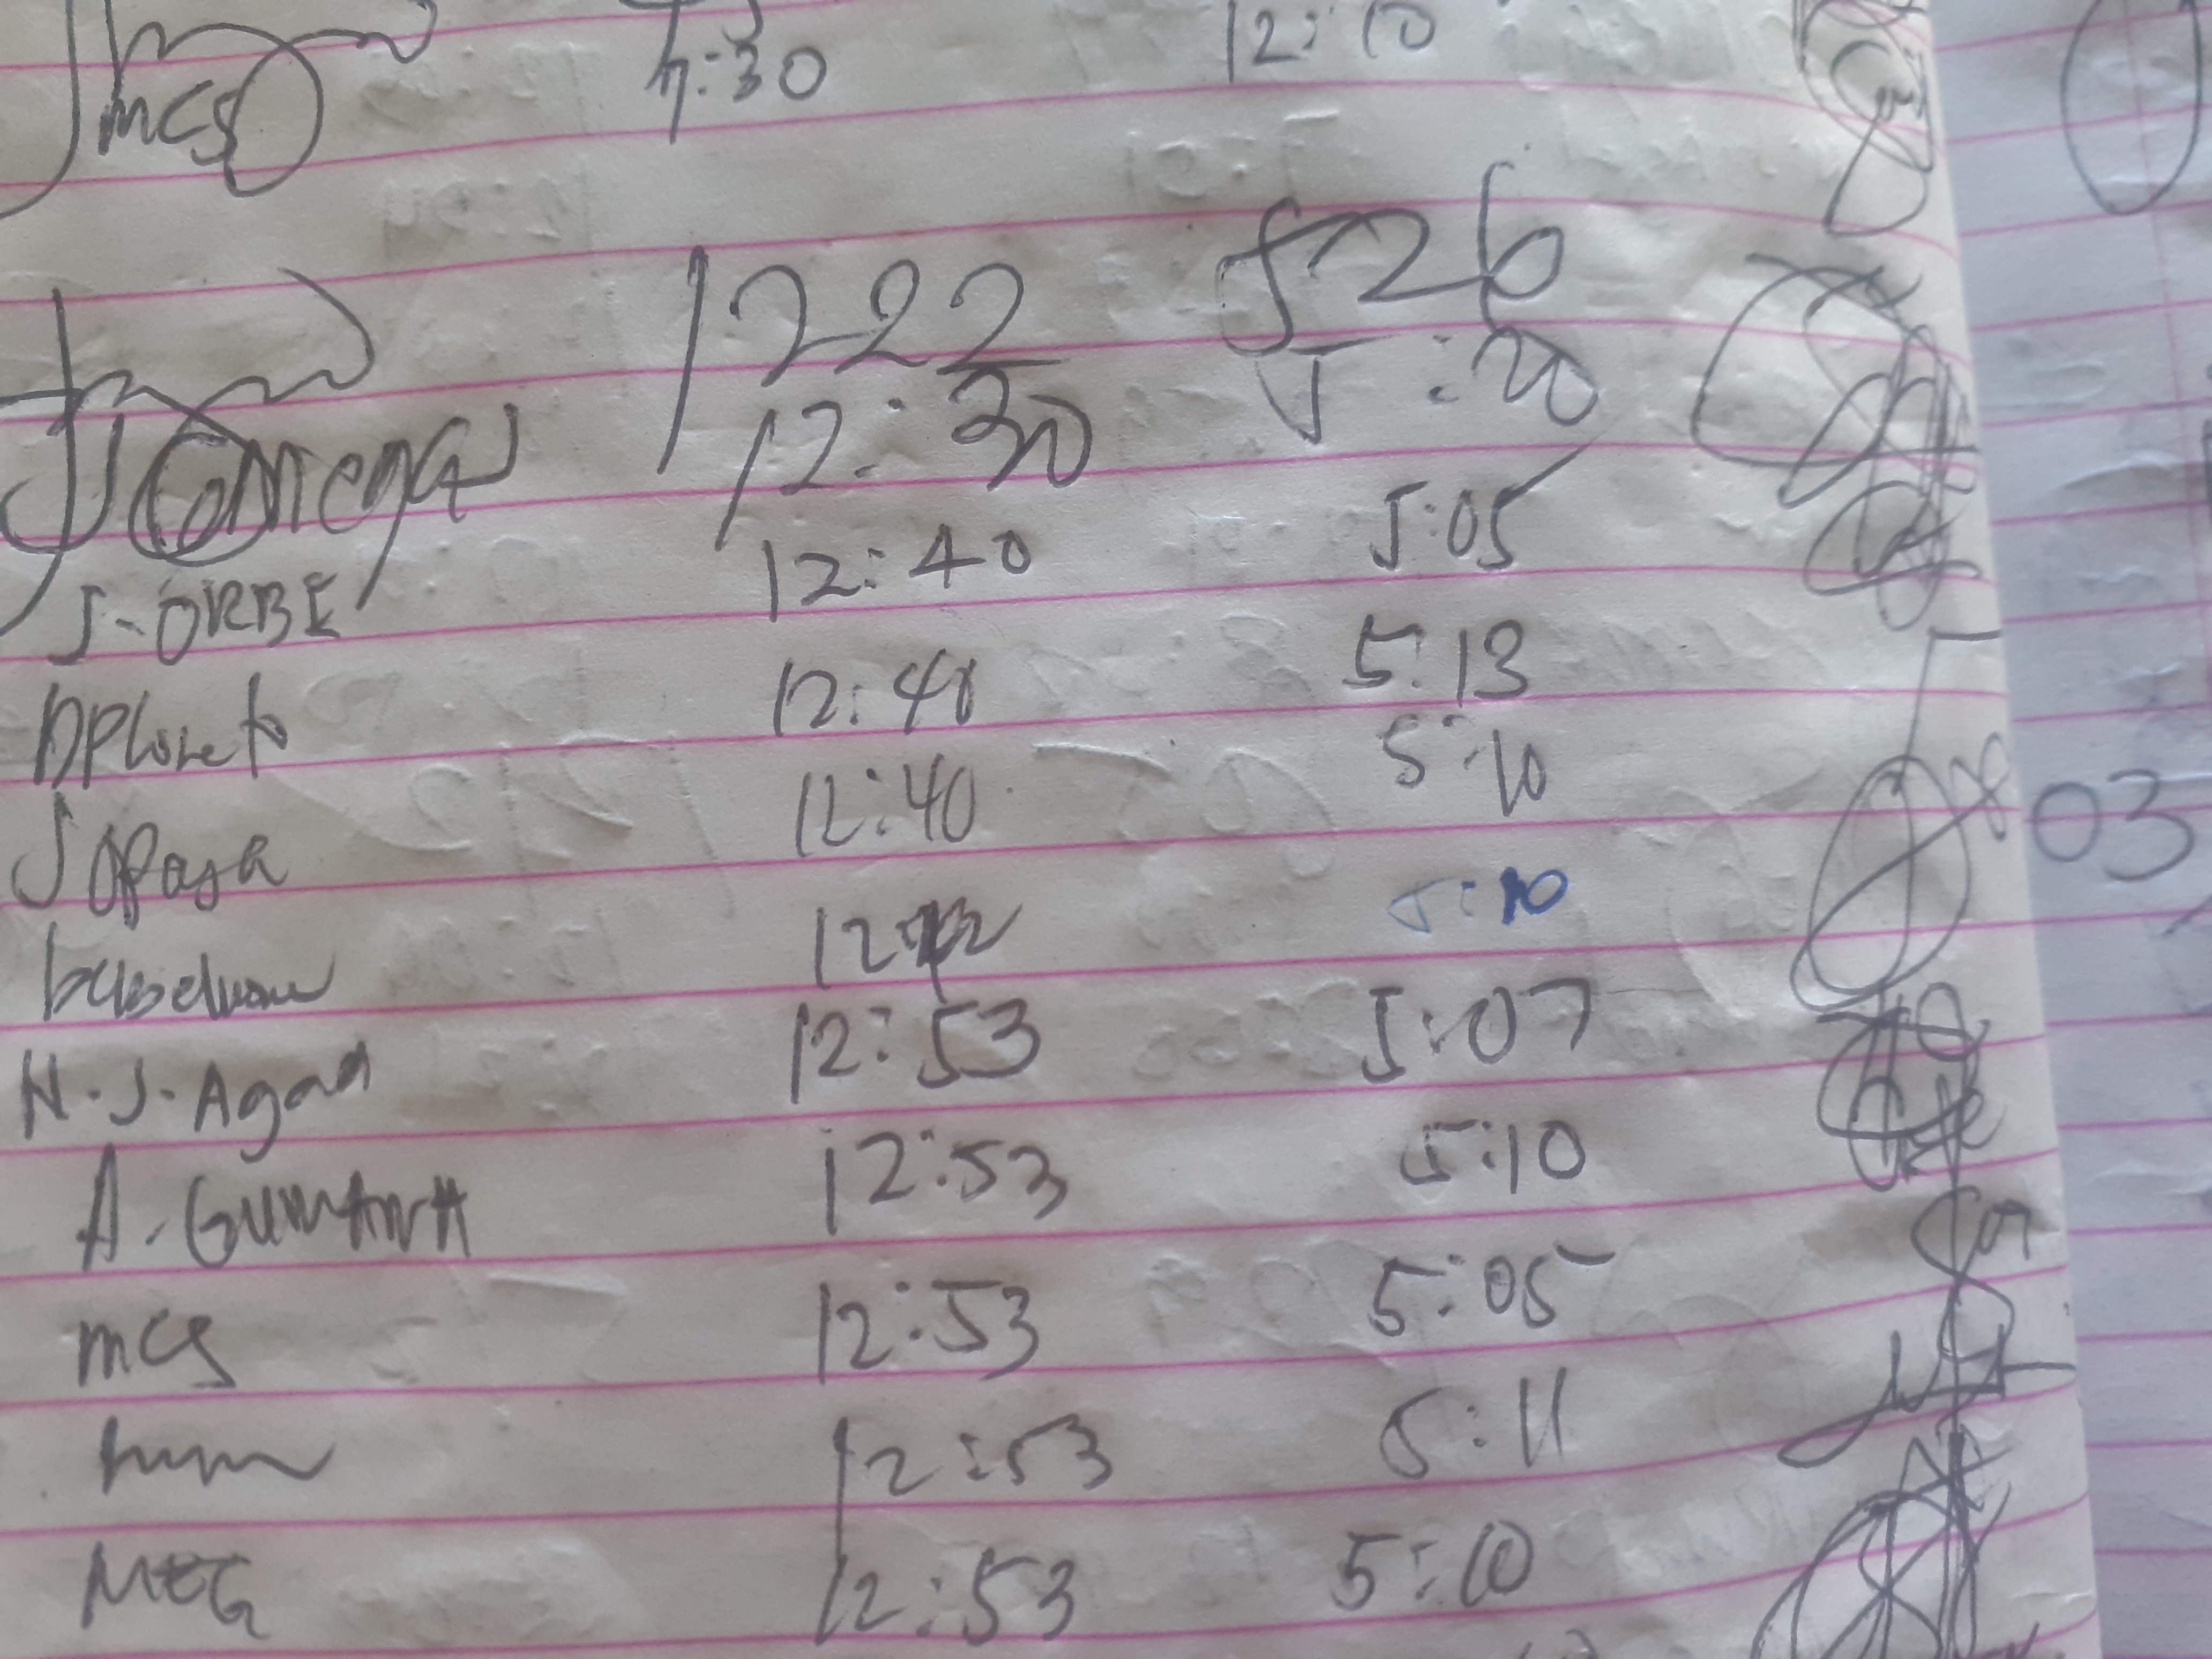 mcs 7:30 12:10
1222 526
J Omega 12:30 5:20
J-ORBE 12:40 5:05
DPLoreto 12:48 5:13
J Opaya 12:40 5:10
12:42 5:10
N.J.Agad 12:53 5:07
A.GUMANA 12:53 5:10
mcs 12:53 5:05
12:53 5:11
MEG 12:53 5:10
03